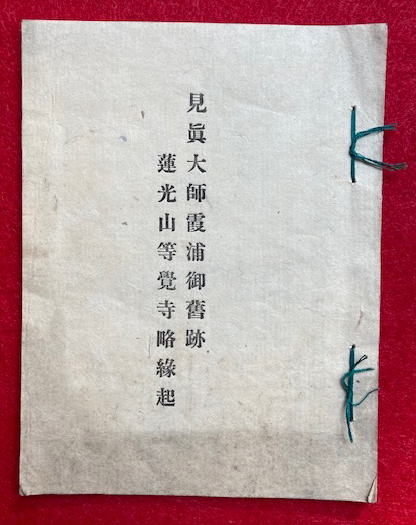 見眞大師霞浦御舊跡
蓮光山等覺寺略緣起